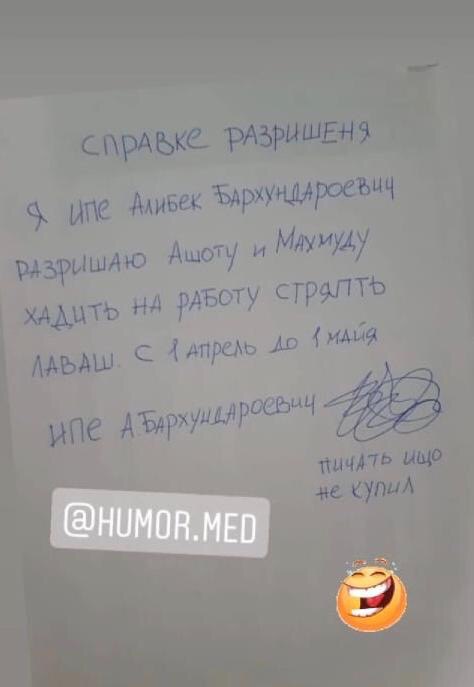 СПРАВКЕ РАЗРИШЕНЯ
Я ИПЕ АЛИБЕК БАРХУНДАРОЕВИЧ
РАЗРИШАЮ АШОТУ И МАХМУДУ
ХАДИТЬ НА РАБОТУ СТРЯПТЬ
ЛАВАШ. С 1 АПРЕЛЬ ДО 1 МАЙЯ
ИПЕ А.БАРХУНДАРОЕВИЧ
ПИЧАТЬ ИЩО
НЕ КУПИЛ
@HUMOR.MED